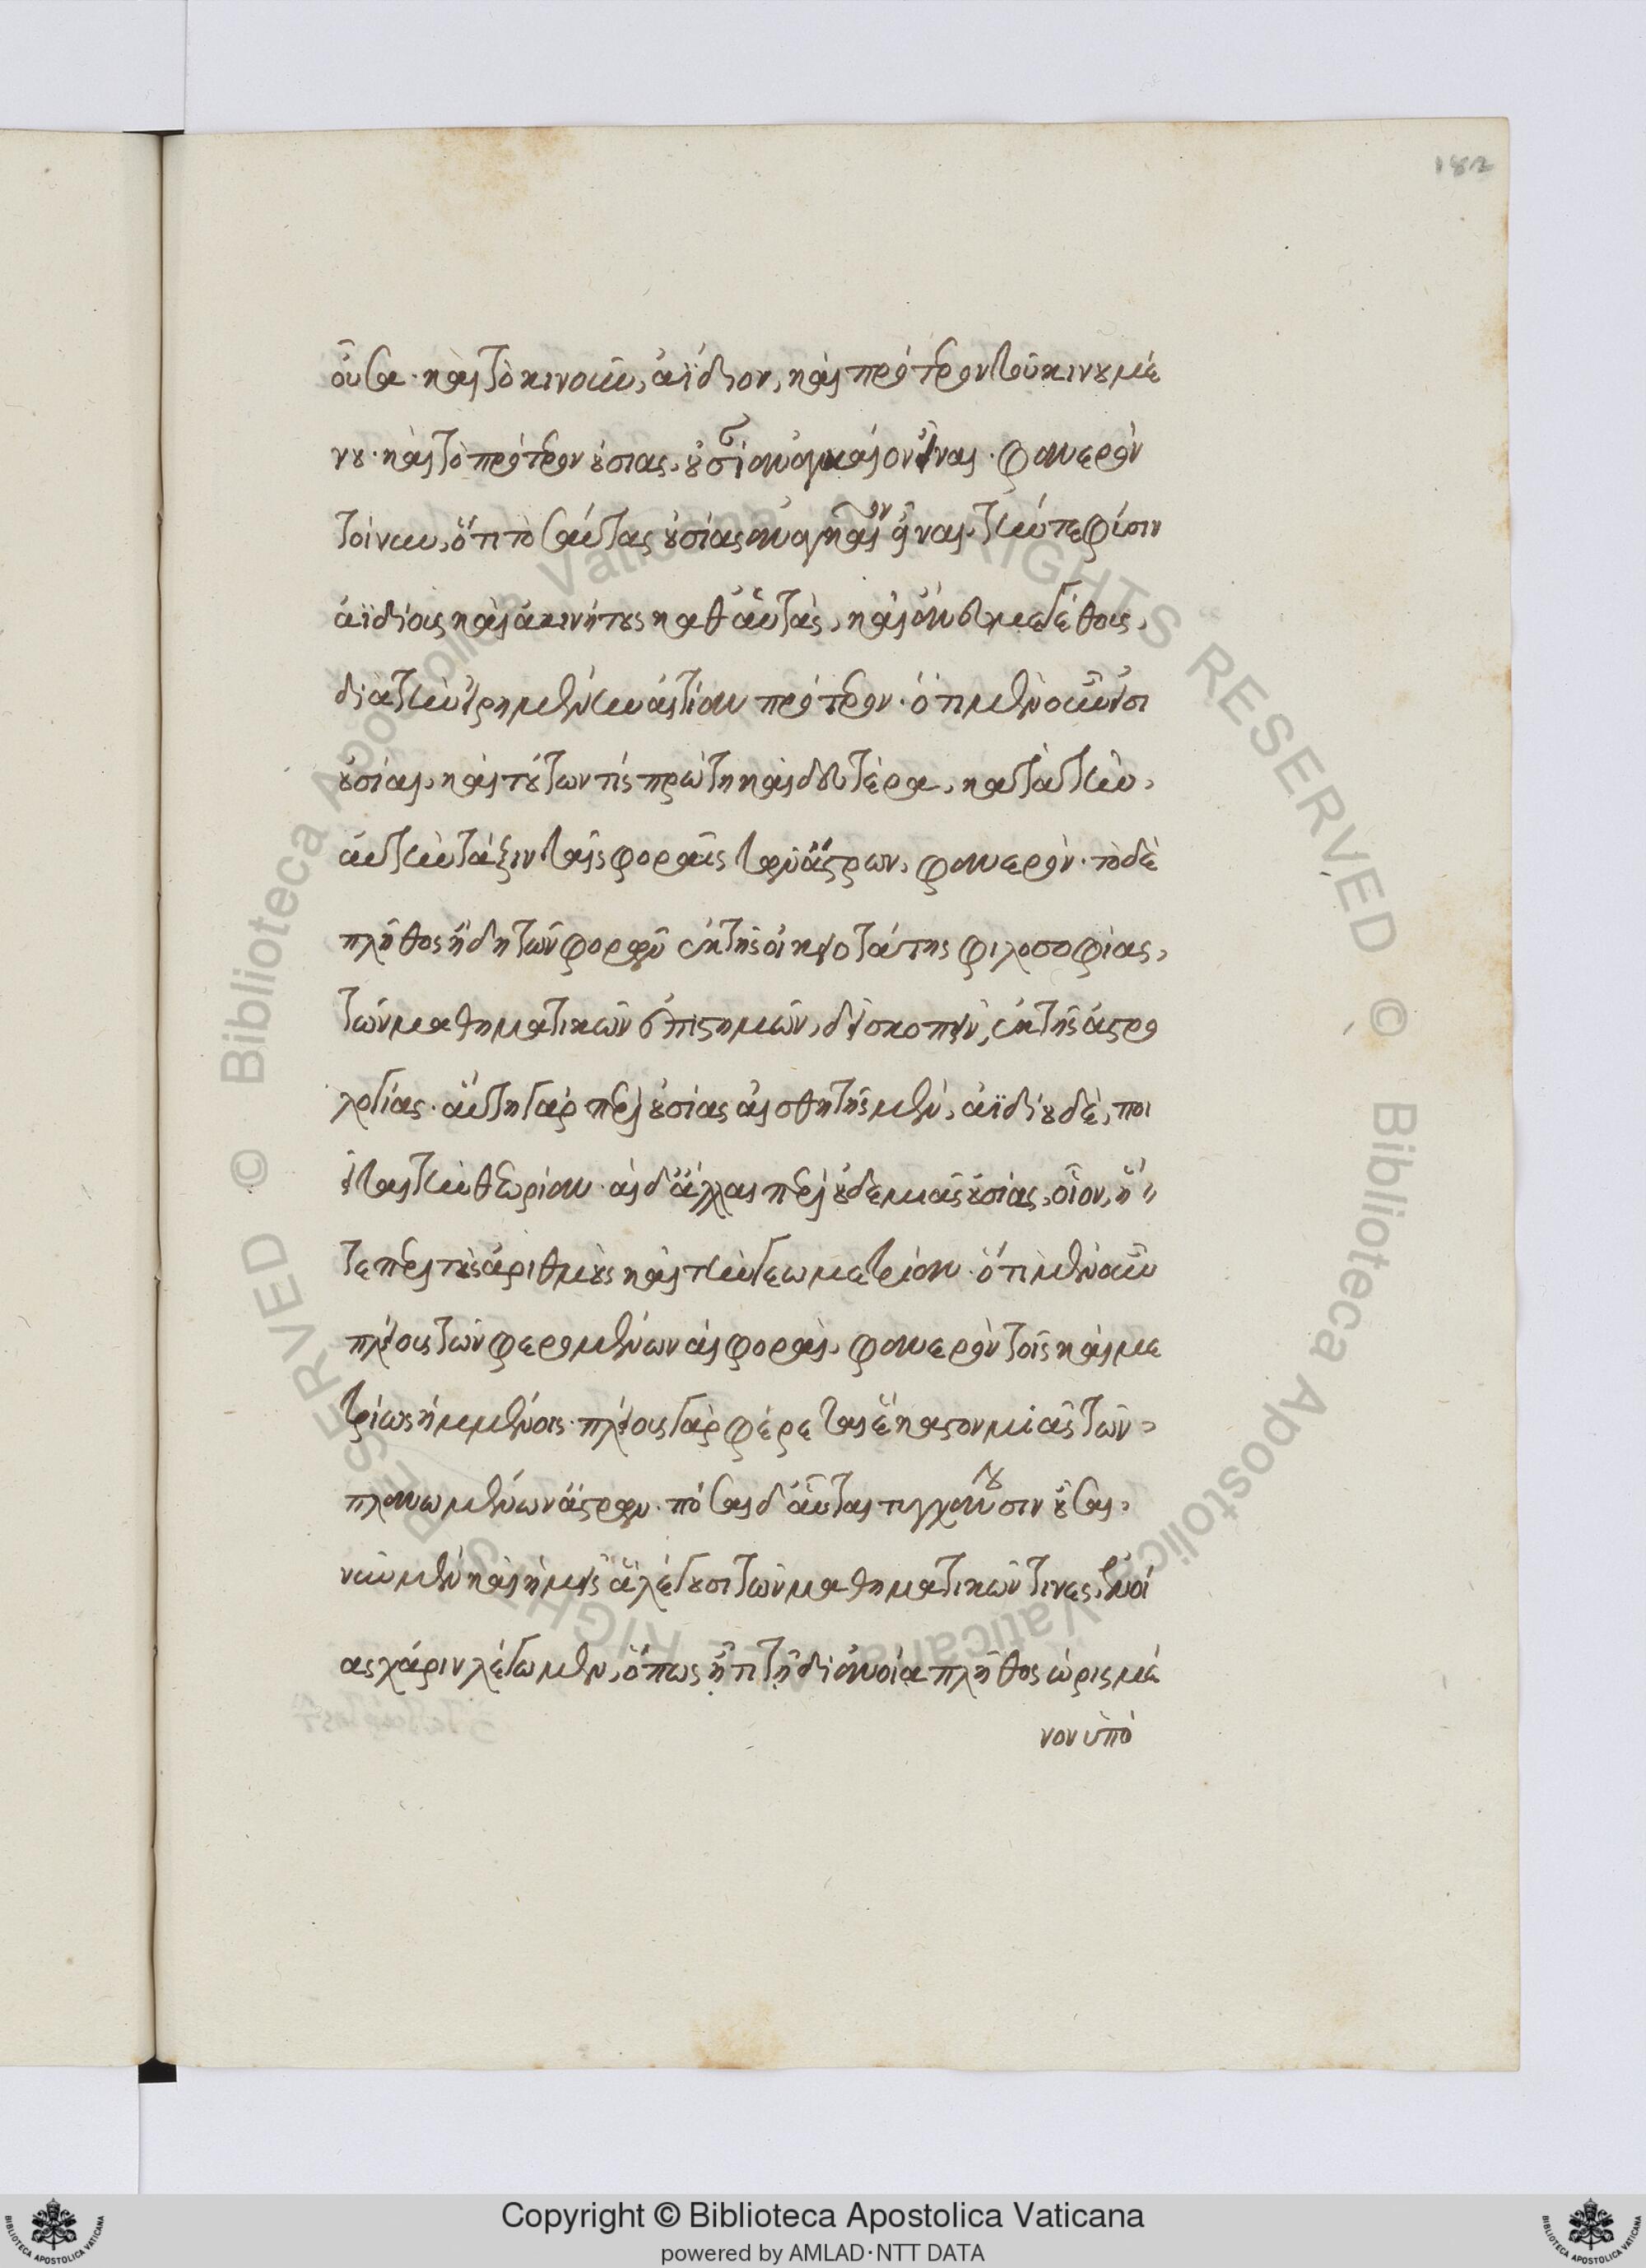 182
οὖσα· καὶ τὸ κινοῦν, ἀΐδιον, καὶ πρότερον τοῦ κινουμέ
νου· καὶ τὸ πρότερον οὐσίας, οὐσίαν ἀναγκαῖον εἶναι· φανερὸν
τοίνυν, ὅτι τοσαύτας οὐσίας ἀναγκαῖον εἶναι, τήν τε φύσιν
ἀϊδίους καὶ ἀκινήτους καθ' αὑτὰς, καὶ ἄνευ μεγέθους,
διὰ τὴν εἰρημένην αἰτίαν πρότερον· ὅτι μὲν οὖν εἰσι
οὐσίαι, καὶ τούτων τίς πρώτη καὶ δευτέρα, κατὰ τὴν
αὐτὴν τάξιν ταῖς φοραῖς τῶν ἄστρων, φανερὸν· τὸ δὲ
πλῆθος ἤδη τῶν φορῶν ἐκ τῆς οἰκειοτάτης φιλοσοφίας,
τῶν μαθηματικῶν ἐπιστημῶν, δεῖ σκοπεῖν, ἐκ τῆς ἀστρο
λογίας· αὕτη γὰρ περὶ οὐσίας αἰσθητῆς μὲν, ἀϊδίου δὲ, ποι
εῖται τὴν θεωρίαν· αἱ δ' ἄλλαι περὶ οὐδεμιᾶς οὐσίας, οἷον, ἥ
τε περὶ τοὺς ἀριθμοὺς καὶ τὴν γεωμετρίαν· ὅτι μὲν οὖν
πλείους τῶν φερομένων αἱ φοραὶ, φανερὸν τοῖς καὶ με
τρίως ἡμμένοις· πλείους γὰρ φέρεται ἕκαστον μιᾶς τῶν
πλανωμένων ἄστρων· πόσαι δ' αὗται τυγχάνουσιν οὖσαι,
νῦν μὲν καὶ ἡμεῖς ἃ λέγουσι τῶν μαθηματικῶν τινες, ἐννοί
ας χάριν λέγωμεν, ὅπως ᾖ τι τῇ διανοίᾳ πλῆθος ὡρισμέ
νον ὑπὸ
© Biblioteca Apostolica Vaticana ALL RIGHTS RESERVED © Biblioteca Apostolica Vaticana ALL RIGHTS RESERVED
Copyright © Biblioteca Apostolica Vaticana
powered by AMLAD·NTT DATA
BIBLIOTECA APOSTOLICA VATICANA
BIBLIOTECA APOSTOLICA VATICANA